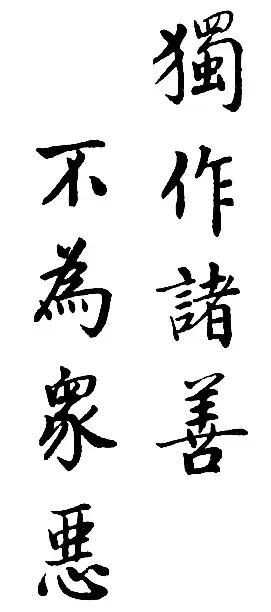 獨作諸善
不為眾惡